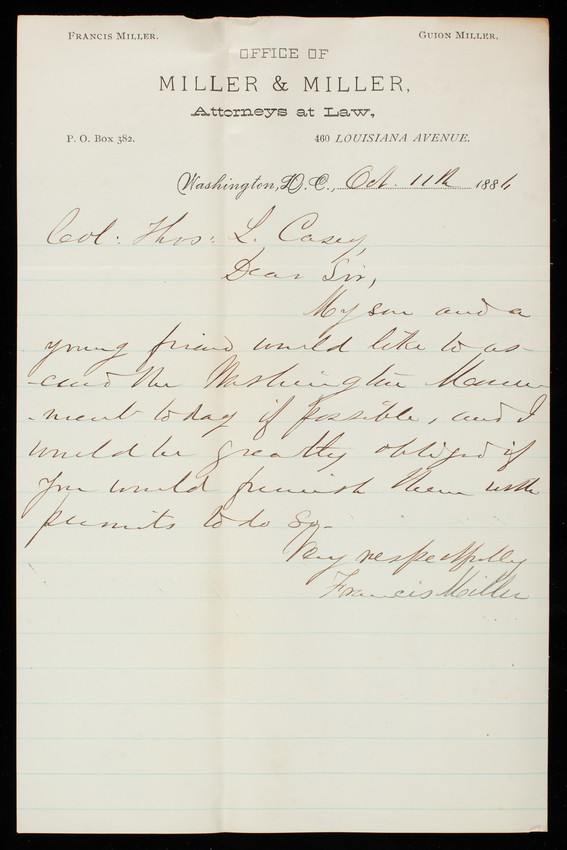 FRANCIS MILLER. GUION MILLER.
OFFICE OF
MILLER & MILLER,
Attorneys at Law,
P. O. Box 382. 460 LOUISIANA AVENUE.
Washington, D. C., Oct. 11th 1886
Col: Thos: L. Casey,
Dear Sir,
My son and a
young friend would like to as-
-cend the Washington Monu-
-ment today if possible, and I
would be greatly obliged if
you would furnish them with
permits to do so.-
Very respectfully
Francis Miller